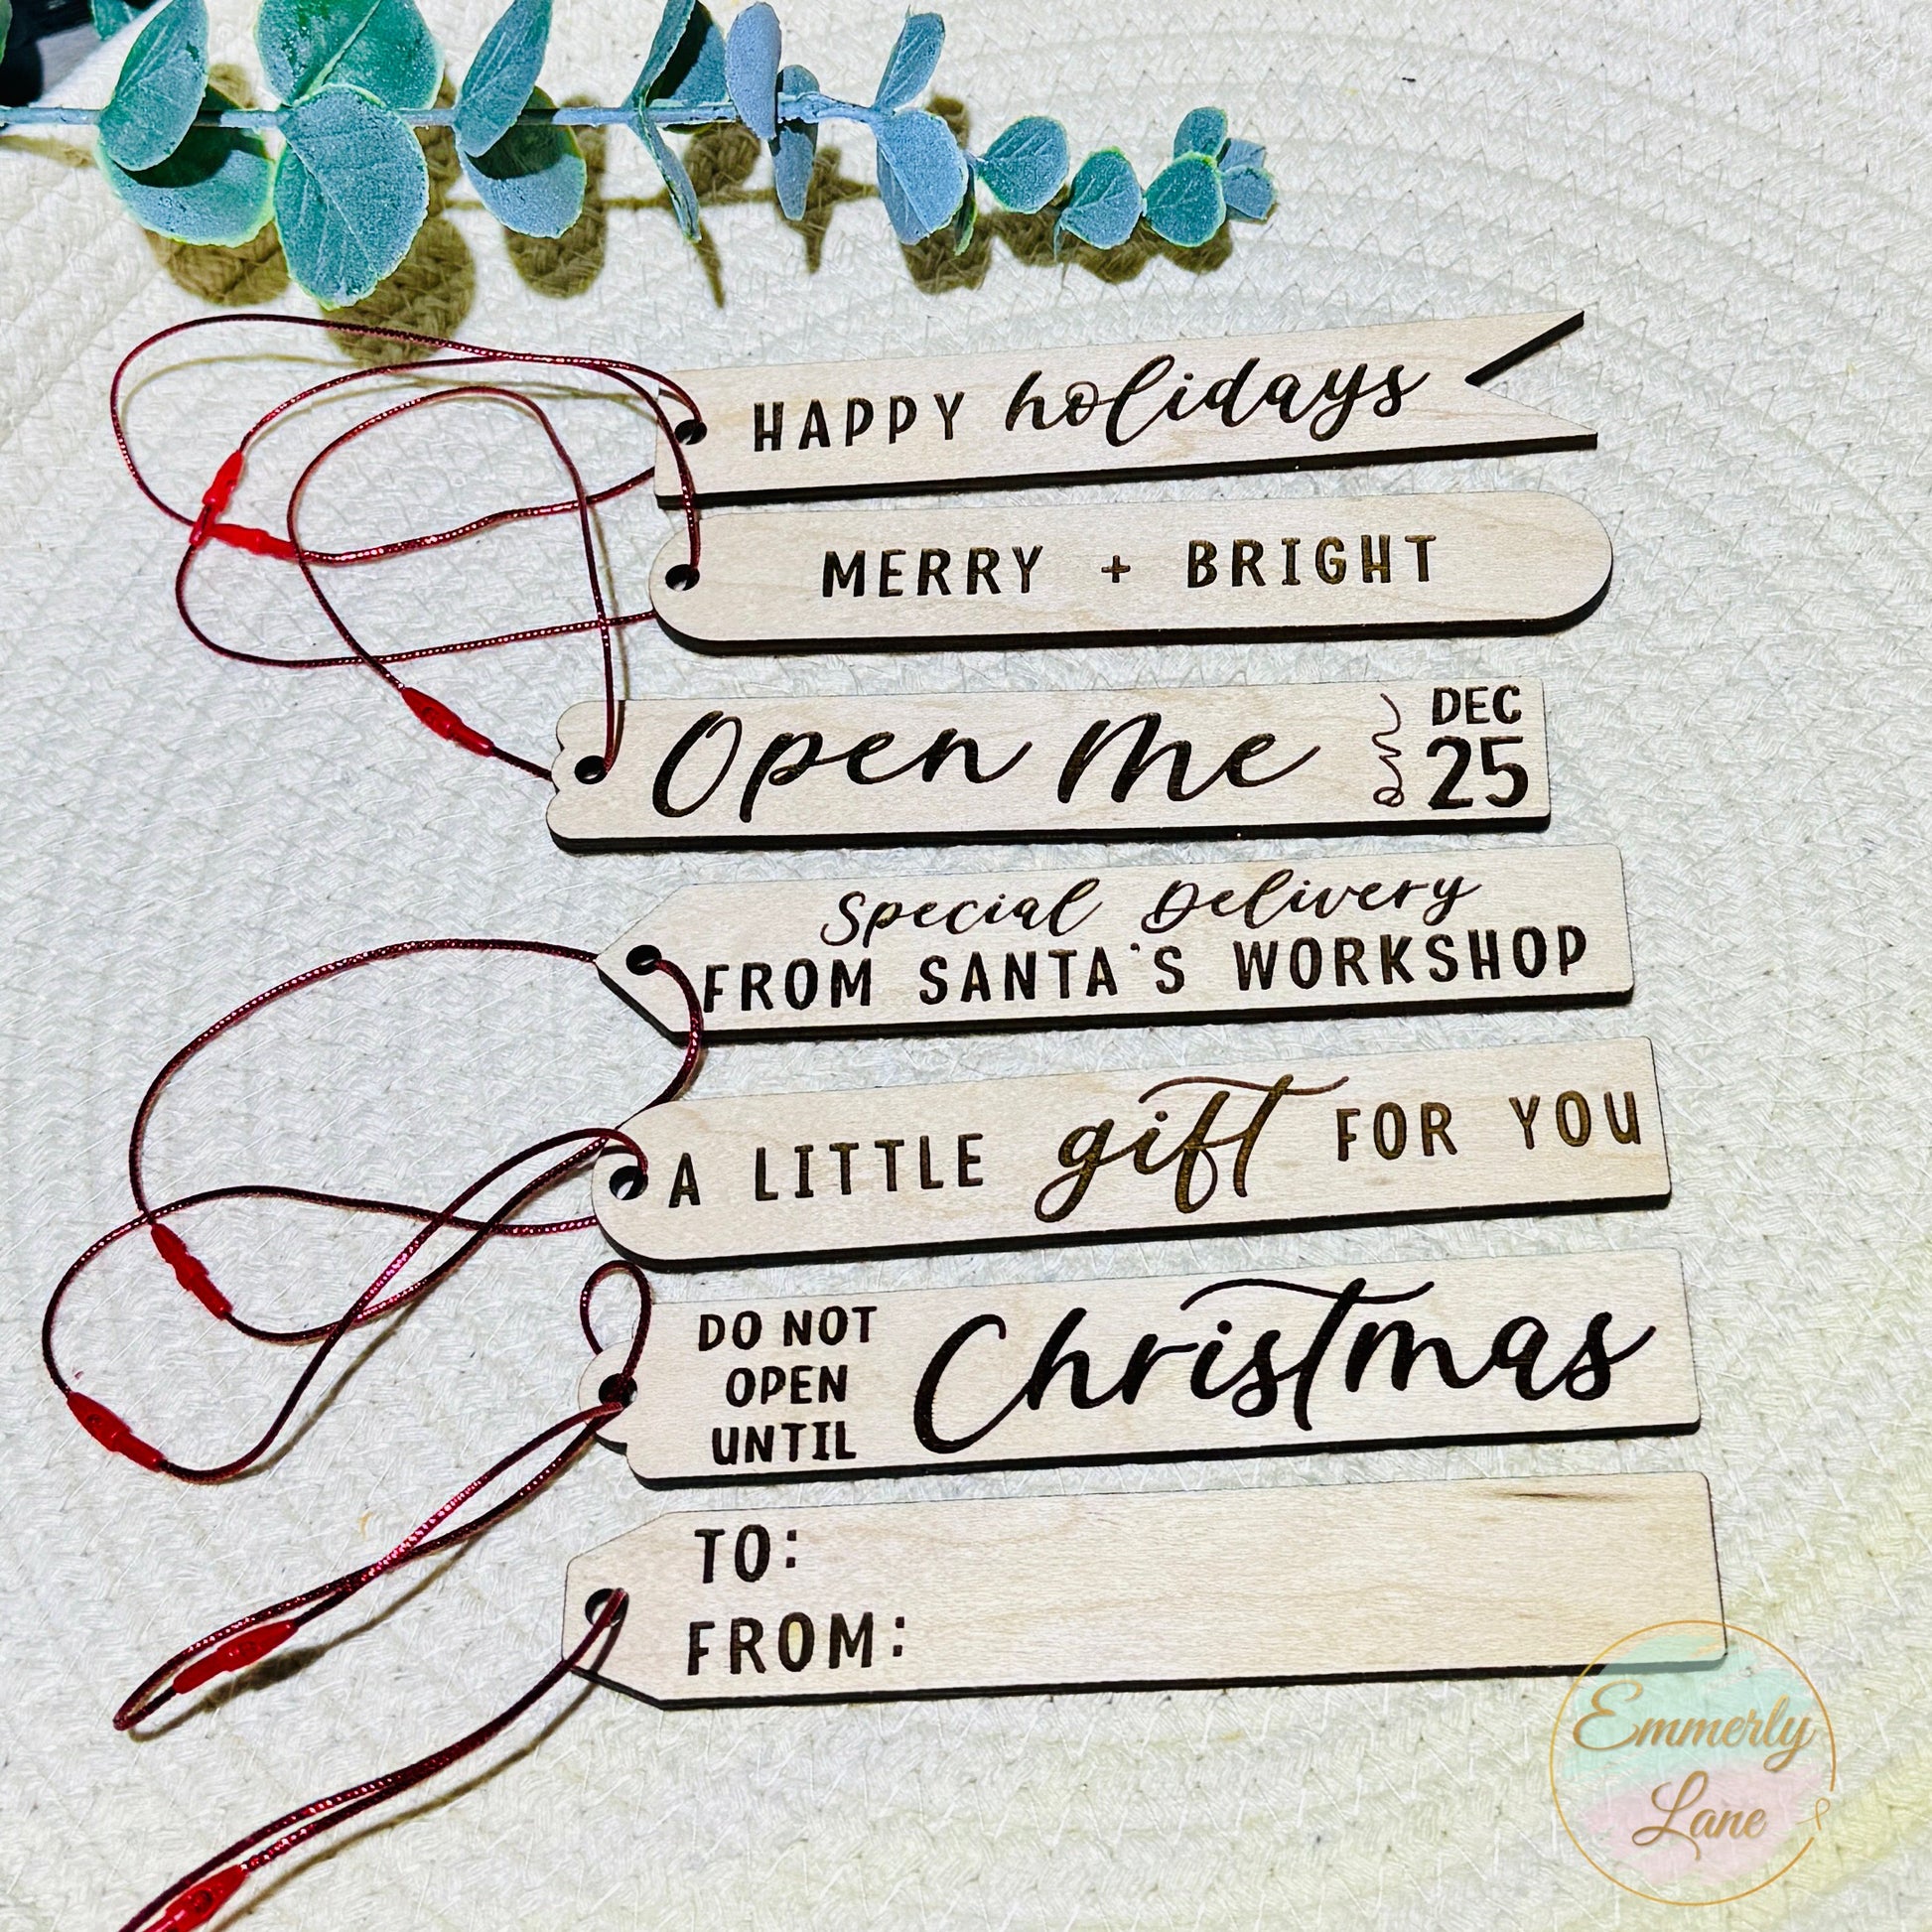 HAPPY holidays
MERRY + BRIGHT
Open Me
DEC
25
Special Delivery
FROM SANTA'S WORKSHOP
A LITTLE gift FOR YOU
DO NOT
OPEN
UNTIL
Christmas
TO:
FROM:
Emmerly
Lane